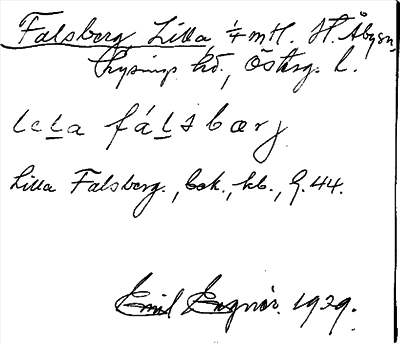 Falsberg, Lilla, 1/4 mtl. St. Åbysn
Kryping hd., Österg. l.
lela fálsbærj
Lilla Falsberg., bok., kb., G. 44.
Emil 1929.